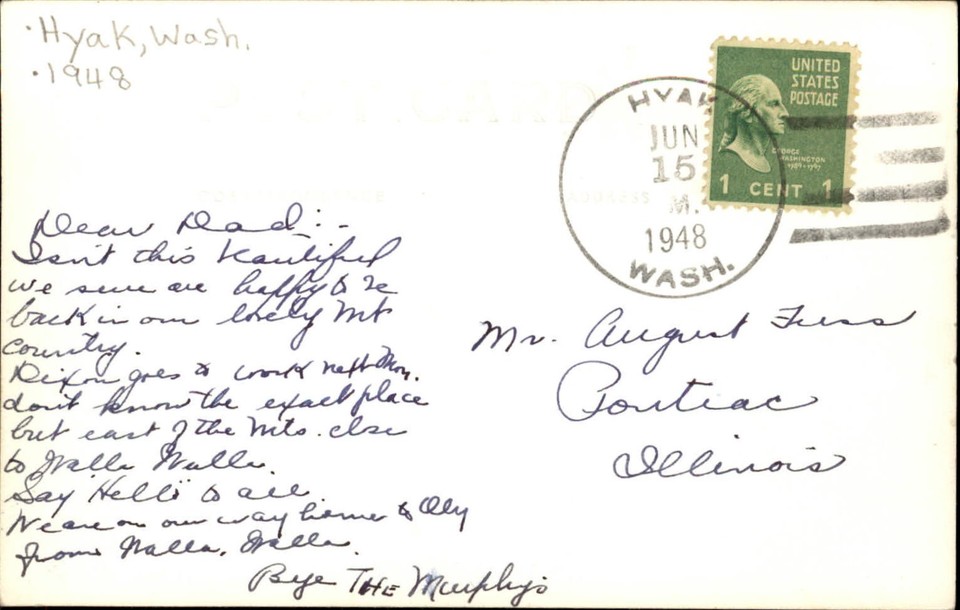 ·Hyak, Wash.
·1948
UNITED
STATES
POSTAGE
GEORGE
WASHINGTON
1 CENT 1
HYAK
JUN
15
M.
1948
WASH.
ADDRESS
Dear Dad:-
Isn't this beautiful
we sure are happy to be
back in our lovely Mt
country.
Dixon goes to work next Mon.
don't know the exact place
but east of the Mts. close
to Walla Walla.
Say "Hello" to all.
We are on our way home to Oly
from Walla, Walla.
Bye THE Murphys
Mr. August Fuss
Pontiac
Illinois